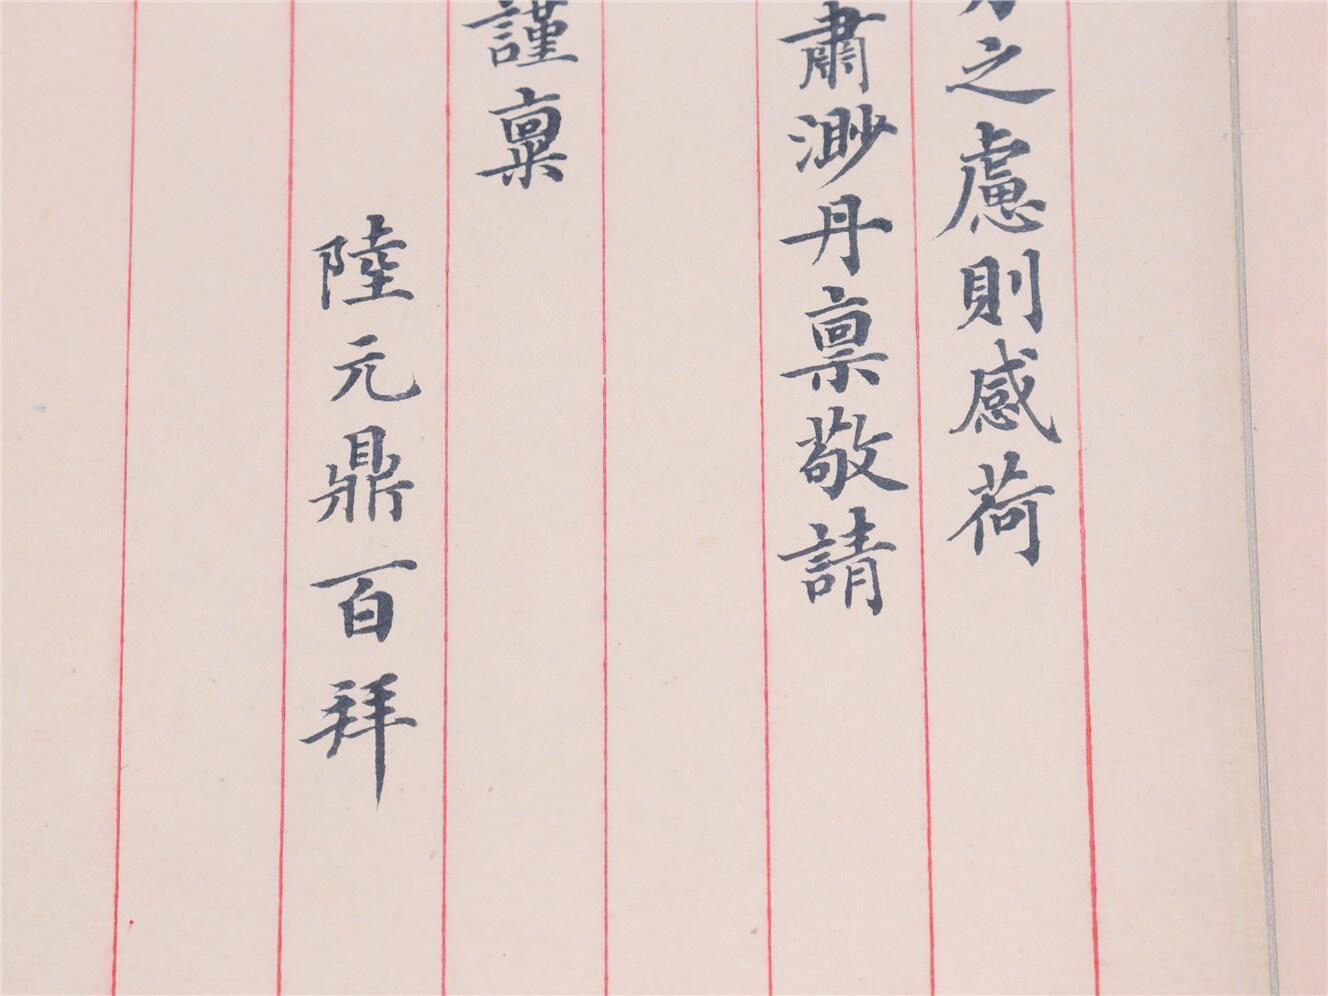 之慮則感荷
肅渺丹禀敬請
謹稟
陸元鼎百拜